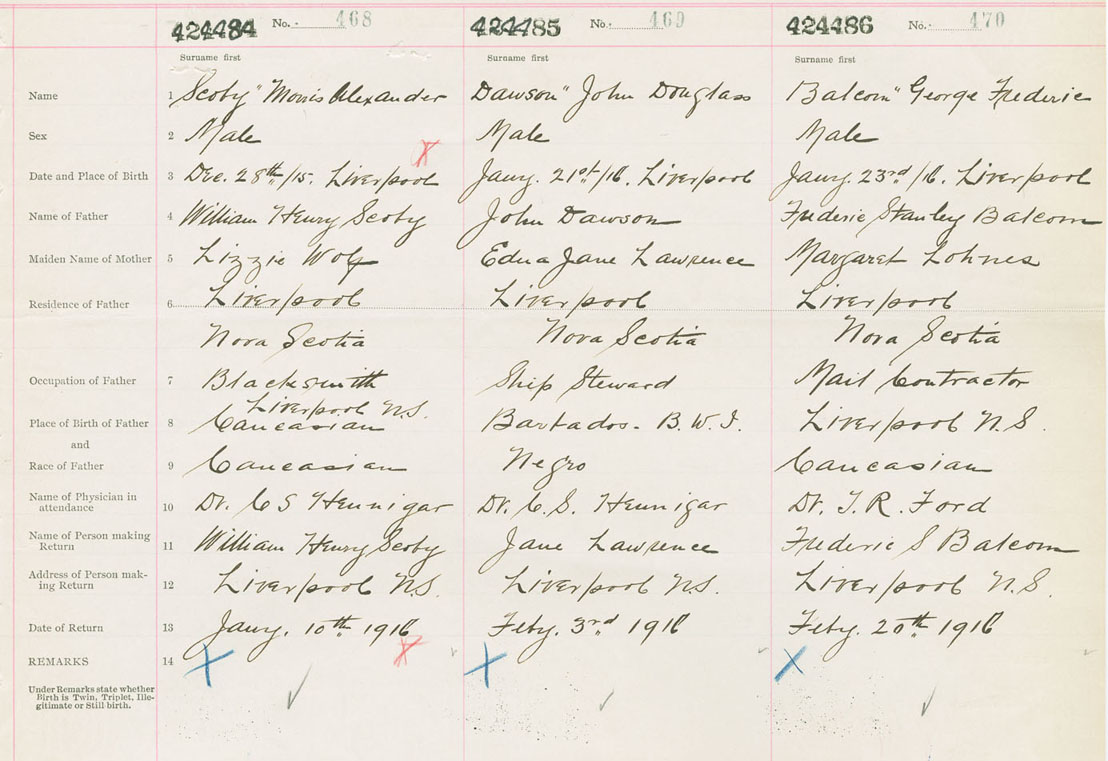 424484 No. 468 424485 No. 469 424486 No. 470
Surname first Surname first Surname first
Name 1 Scoby" Morris Alexander Dawson" John Douglass Balcom" George Frederic
Sex 2 Male Male Male
Date and Place of Birth 3 Dec. 28th/15. Liverpool Jany. 21st/16. Liverpool Jany. 23rd/16. Liverpool
Name of Father 4 William Henry Scoby John Dawson Frederic Stanley Balcom
Maiden Name of Mother 5 Lizzie Wolf Edna Jane Lawrence Margaret Lohnes
Residence of Father 6 Liverpool Liverpool Liverpool
Nova Scotia Nova Scotia Nova Scotia
Occupation of Father 7 Blacksmith Ship Steward Mail Contractor
Liverpool N.S.
Place of Birth of Father 8 Caucasian Barbados. B.W.I. Liverpool N.S.
and
Race of Father 9 Caucasian Negro Caucasian
Name of Physician in
attendance 10 Dr. C S Hennigar Dr. C.S. Hennigar Dr. T. R. Ford
Name of Person making
Return 11 William Henry Scoby Jane Lawrence Frederic S Balcom
Address of Person mak-
ing Return 12 Liverpool N.S. Liverpool N.S. Liverpool N.S.
Date of Return 13 Jany. 10th 1916 Feby. 3rd 1916 Feby. 20th 1916
REMARKS 14
Under Remarks state whether
Birth is Twin, Triplet, Ille-
gitimate or Still birth.